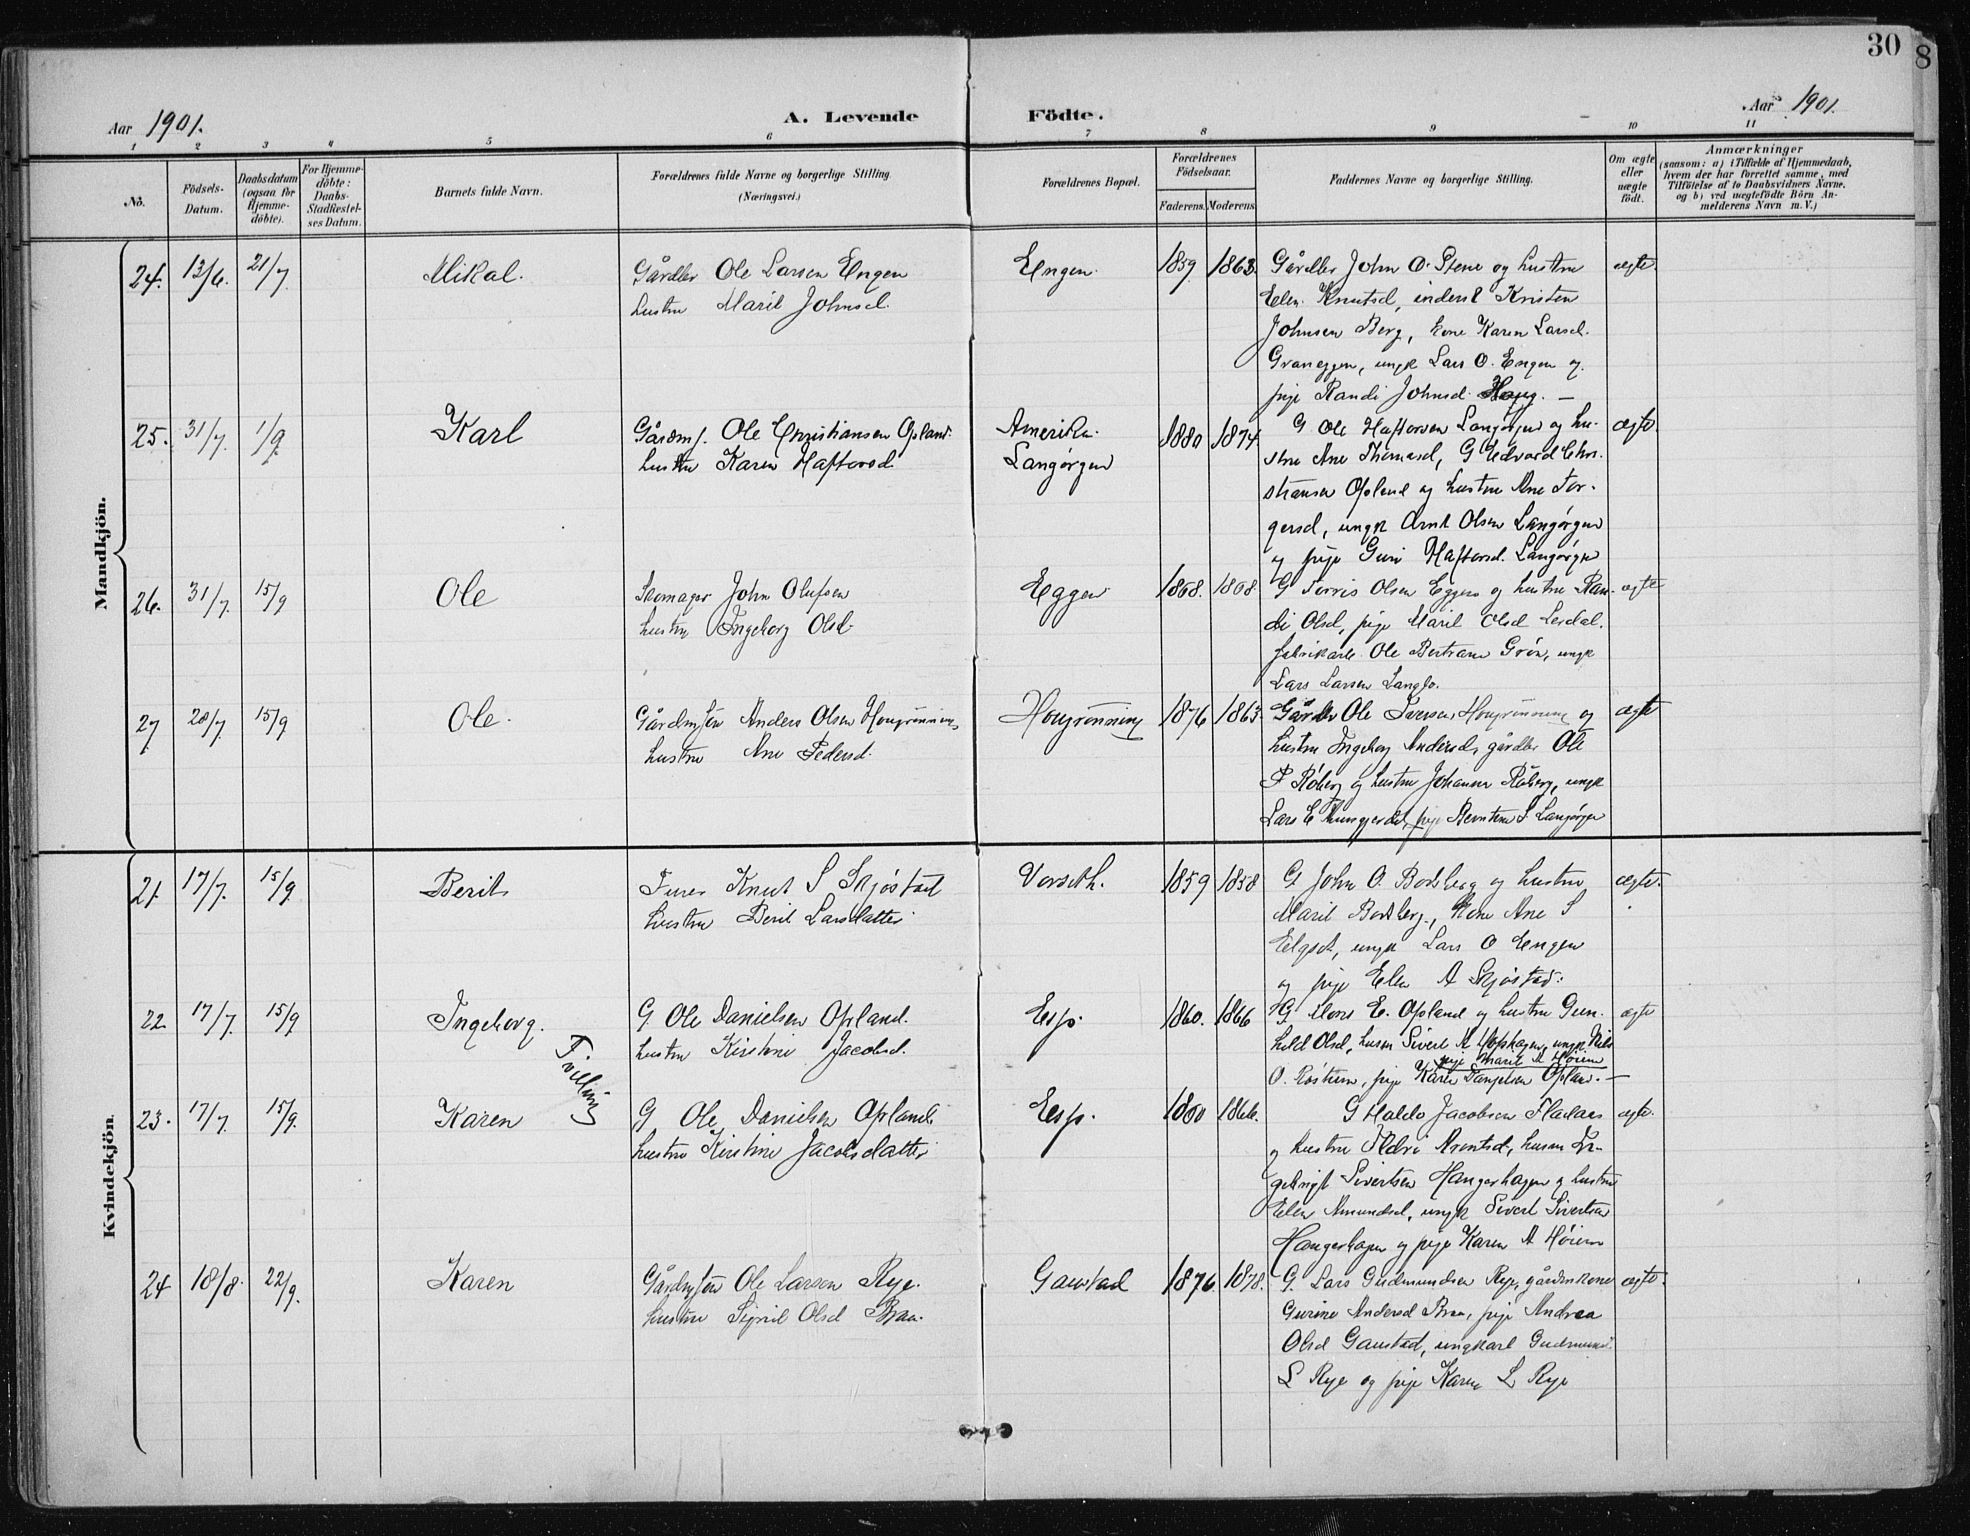 30
8
Aar 1901.
A. Levende Födte.
Aar 1901.
1 2 3 4 5 6 7 8 9 10 11
No.
Födsels-
Datum.
Daabsdatum
(ogsaa for
Hjemme-
döbte).
For Hjemme-
döbte:
Daabs-
Stadfæstel-
ses Datum.
Barnets fulde Navn.
Forældrenes fulde Navne og borgerlige Stilling.
(Næringsvei.)
Forældrenes Bopæl.
Forældrenes
Födselsaar.
Faderens. Moderens.
Faddernes Navne og borgerlige Stilling.
Om ægte
eller
uægte
födt.
Anmærkninger
(saasom: a) i Tilfælde af Hjemmedaab,
hvem der har forrettet samme, med
Tilföielse af to Daabsvidners Navne,
og b) ved uægtefödte Börn An-
melderens Navn m. V.)
Mandkjön.
24. 13/6. 21/7. Mikal.
Gårdbr Ole Larsen Engen
hustru Marit Johnsd.
Engen. 1859 1863.
Gårdbr John O. Stene og hustru
Elen Knutsd, inderst Kristen
Johnsen Berg, kone Karen Larsd.
Graneggen, ungk Lars O. Engen og
pige Randi Johnsd. Haug. —
ægte.
25. 31/7. 1/9. Karl
Gårdmf. Ole Christiansen Opland.
hustru Karen Haftorsd.
Amerika.
Langörgen
1880 1874.
G Ole Haftorsen Langörgen og hu-
stru Ane Thomasd, G Edvard Chri-
stiansen Opland og hustru Ane Tor-
gersd, ungk Arnt Olsen Langörgen
og pige Guri Haftorsd. Langörgen
ægte.
26. 31/7. 15/9 Ole
Skomager John Olufsen
hustru Ingeborg Olsd.
Eggen 1868. 1868.
G Sivris Olsen Eggen og hustru Ran-
di Olsd, pige Marit Olsd Lerdal.
fabrikarb. Ole Bertram Grön, ungk
Lars Larsen Langlo.
ægte
27 28/7 15/9 Ole.
Gårdmssön Anders Olsen Hougrönning
hustru Ane Pedersd.
Hougrönning 1876 1863.
Gårdbr Ole Iversen Hougrönning og
hustru Ingeborg Andersd, gårdbr Ole
P Råberg og hustru Johanna Råberg, ungk
Lars E pige Berntine S Langörgen
ægte
Kvindekjön
21. 17/7. 15/9. Berit
Knut S Skjöstad
hustru Berit Larsdatter
Vorseth. 1859 1858
G John O. Bodsberg og hustru
Marit Bodsberg, kone Ane S
Elgset, ungk Lars O Engen
og pige Elen A Skjöstad.
ægte.
22 17/7. 15/9 Ingeborg.
Tvilling
G. Ole Danielsen Opland.
hustru Kirstine Jacobsd.
Esp. 1860. 1866
G. E. Opland og hustru Gun-
hild Olsd, husm Sivert A Hophagen, ungk Nils
pige Marit A Höiem
O. Röstum, pige Karen Danielsen Opland. —
ægte
23. 17/7. 15/9. Karen
G Ole Danielsen Opland
hustru Kirstine Jacobsdatter
Esp. 1860 1866.
G Haldo Jacobsen Fladaas
og hustru Ildri Arentsd, husm In-
gebrigt Sivertsen Hangerhagen og hustru
Elen Amundsd, ungk Sivert Sivertsen
Hangerhagen og pige Karen A Höiem
ægte.
24 18/8. 22/9. Karen
Gårdmssön Ole Larsen Rye.
hustru Sigrid Olsd Braa.
Gaustad 1876. 1878.
G. Lars Gudmundsen Rye, gårdmkone
Gurine Andersd Braa, pige Andrea
Olsd Gaustad, ungkarl Gudmund
L Rye og pige Karen L Rye
ægte.